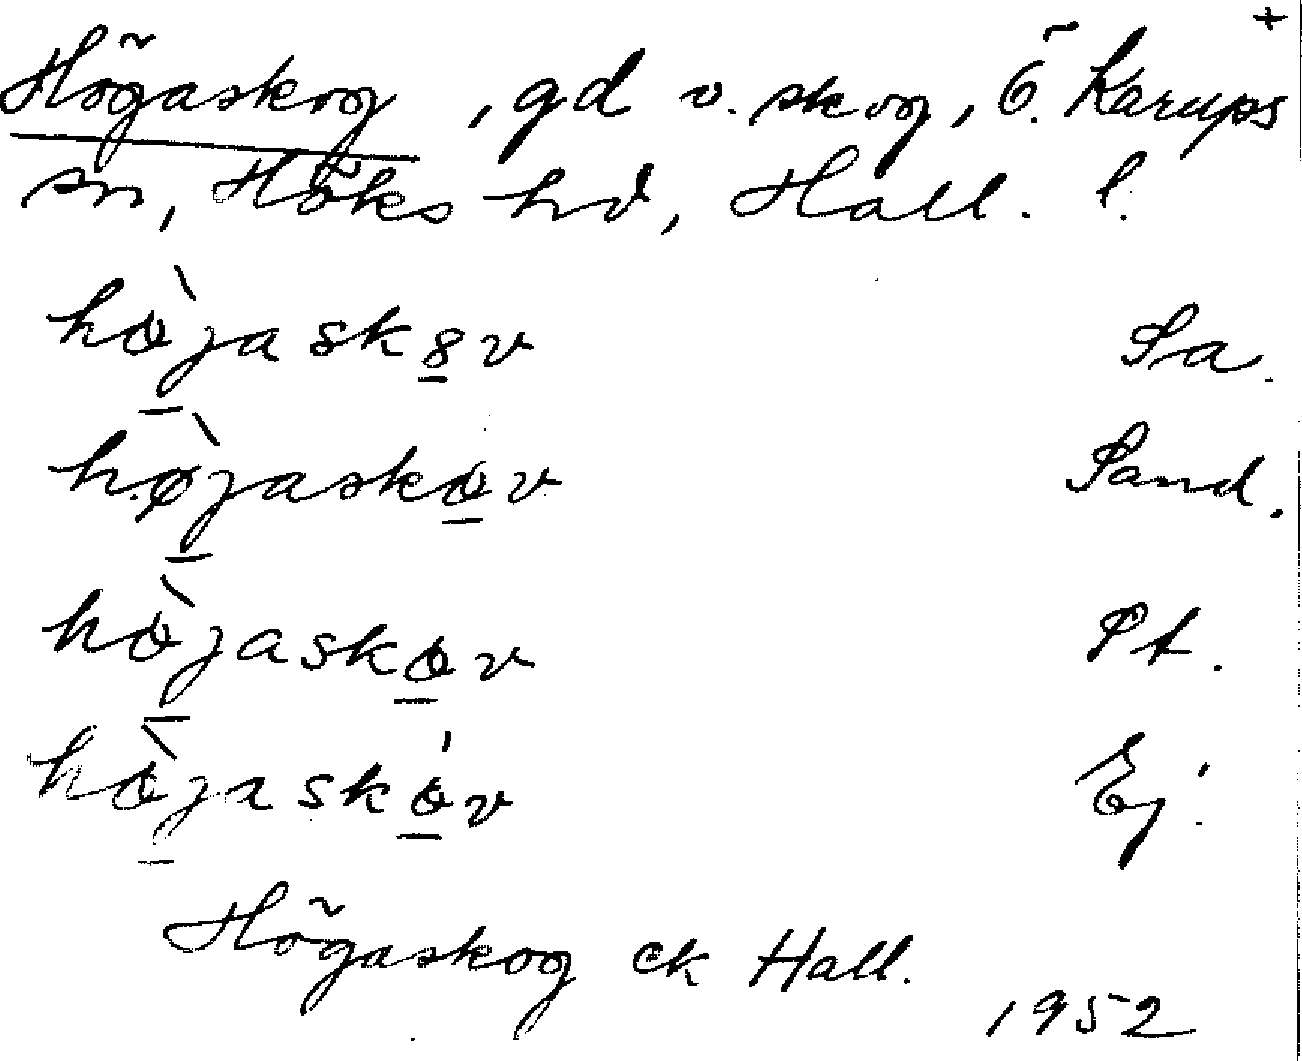 +
Högaskog, gd o. skog, Ö. Karups
sn, Höks hd, Hall. l.
hø̀jaskɵv Sa.
hø̀jaskov Sand.
hø̀jaskov Pt.
hø̀jaskóv Ej.
Högaskog ek Hall.
1952